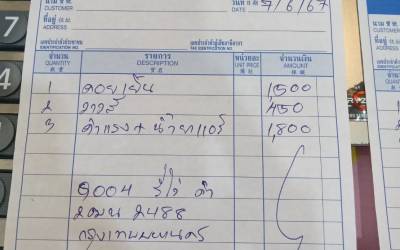 นาม ช.พ. วันที่ 7/6/67
CUSTOMER DATE
ที่อยู่ ช.พ.
ADDRESS
เลขประจำตัวประชาชน เลขประจำตัวผู้เสียภาษีอากร
IDENTIFICATION NO. TAX IDENTIFICATION NO.
จำนวน รายการ หน่วยละ จำนวนเงิน
QUANTITY DESCRIPTION UNIT PRICE AMOUNT
1 คอยเย็น 1,500
2 วาวล์ 450
3 ค่าแรง + น้ำยาแอร์ 1,800
2488
กรุงเทพมหานคร
นาม ช.พ.
CUSTOMER
ที่อยู่
ADDRESS